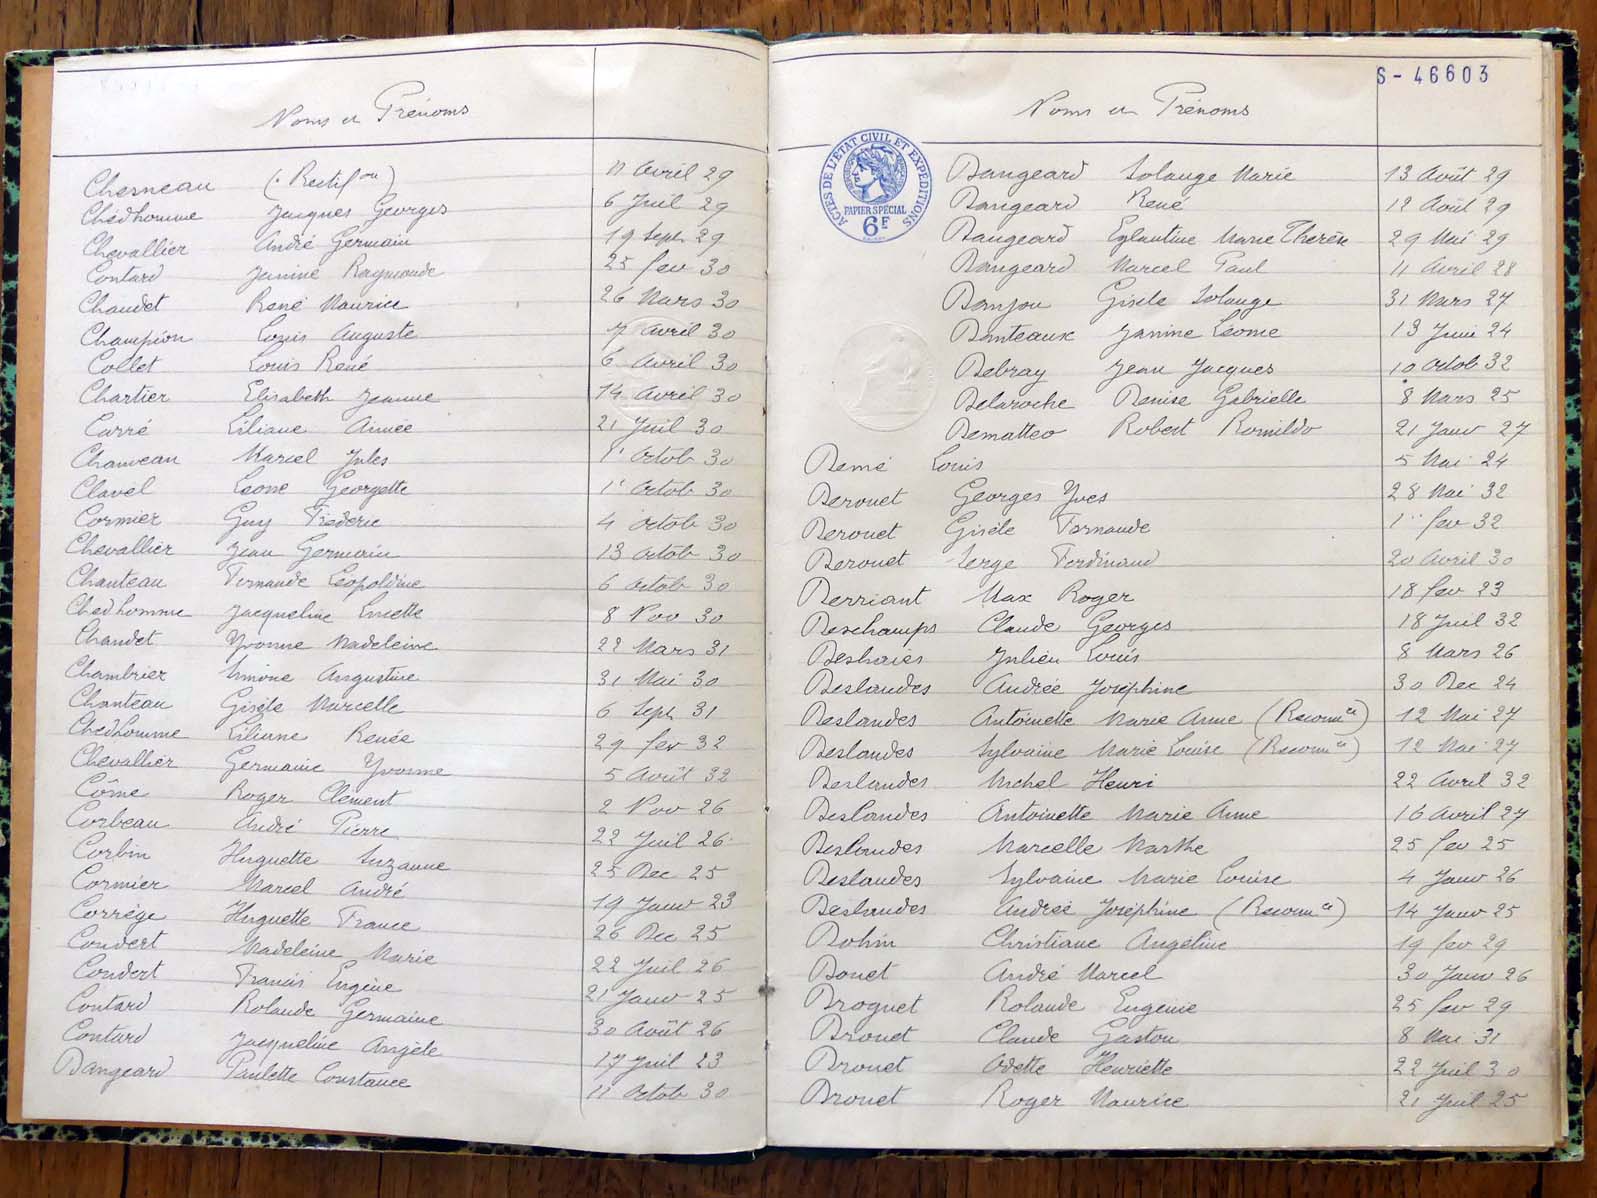 Noms et Prénoms
Chesneau (Rectif on) 11 Avril 29
Chédhomme Jacques Georges 6 Juil 29
Chevallier André Germain 19 Sept 29
Contard Janine Raymonde 25 fev 30
Chaudet René Maurice 26 Mars 30
Champion Louis Auguste 7 Avril 30
Collet Louis René 6 Avril 30
Chartier Elisabeth Jeanne 14 Avril 30
Carré Liliane Aimée 21 Juil 30
Chauveau Marcel Jules 1r Octob 30
Clavel Leone Georgette 1r Octob 30
Cormier Guy Fréderic 4 Octob 30
Chevallier Jean Germain 13 Octob 30
Chanteau Fernande Léopoldine 6 Octob 30
Chedhomme Jacqueline Lucette 8 Nov 30
Chaudet Yvonne Madeleine 22 Mars 31
Chambrier Simone Augustine 31 Mai 30
Chanteau Gisèle Marcelle 6 Sept 31
Chedhomme Liliane Renée 29 fev 32
Chevallier Germaine Yvonne 5 Août 32
Côme Roger Clément 2 Nov 26
Corbeau André Pierre 22 Juil 26
Corbin Huguette Suzanne 25 Dec 25
Cormier Marcel André 19 Janv 23
Corrège Huguette France 26 Dec 25
Coudert Madeleine Marie 22 Juil 26
Coudert Francis Eugène 21 Janv 25
Contard Rolande Germaine 30 Août 26
Contard Jacqueline Angèle 17 Juil 23
Dangeard Paulette Constance 11 Octob 30
S-46603
Noms et Prénoms
ACTES DE L'ETAT CIVIL ET EXPEDITIONS
PAPIER SPÉCIAL
6F
Dangeard Solange Marie 13 Août 29
Dangeard René 12 Août 29
Dangeard Eglantine Marie Thérèse 29 Mai 29
Dangeard Marcel Paul 11 Avril 28
Danjou Gisèle Solange 31 Mars 27
Danteaux Janine Léonie 13 Juin 24
Debray Jean Jacques 10 Octob 32
Delaroche Denise Gabrielle 8 Mars 25
Dematteo Robert Romildo 21 Janv 27
Demé Louis 5 Mai 24
Derouet Georges Yves 28 Mai 32
Derouet Gisèle Fernande 1er fev 32
Derouet Serge Ferdinand 20 Avril 30
Derriant Max Roger 18 fev 23
Deschamps Claude Georges 18 Juil 32
Deshaies Julien Louis 8 Mars 26
Deslandes Andrée Joséphine 30 Dec 24
Deslandes Antoinette Marie Anne (Reconn ce) 12 Mai 27
Deslandes Sylvaine Marie Louise (Reconn ce) 12 Mai 27
Deslandes Michel Henri 22 Avril 32
Deslandes Antoinette Marie Anne 16 Avril 27
Deslandes Marcelle Marthe 25 fev 25
Deslandes Sylvaine Marie Louise 4 Janv 26
Deslandes Andrée Joséphine (Reconn ce) 14 Janv 25
Dohin Christiane Angéline 19 fev 29
Douet André Marcel 30 Janv 26
Droguet Rolande Eugénie 25 fev 29
Drouet Claude Gaston 8 Mai 31
Drouet Odette Henriette 22 Juil 30
Drouet Roger Maurice 21 Juil 25